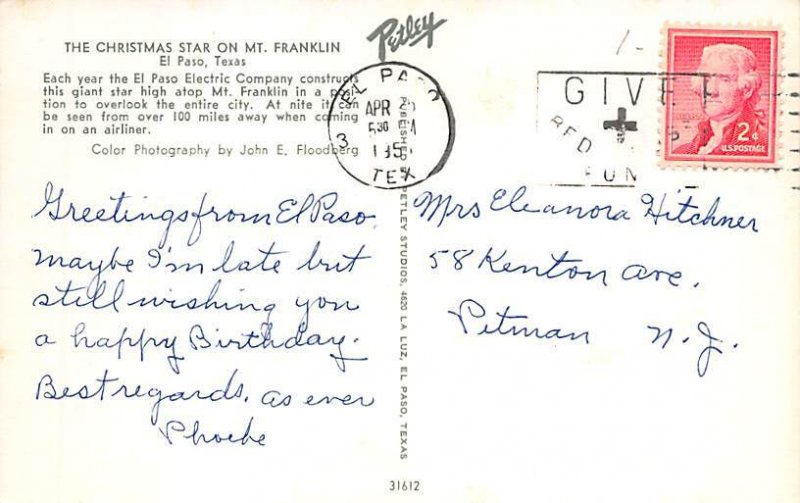 THE CHRISTMAS STAR ON MT. FRANKLIN
El Paso, Texas
Each year the El Paso Electric Company constructs
this giant star high atop Mt. Franklin in a posi-
tion to overlook the entire city. At nite it can
be seen from over 100 miles away when coming
in on an airliner.
Color Photography by John E. Floodberg
Greetings from El Paso.
Maybe I'm late but
still wishing you
a happy Birthday.
Best regards, as ever
Phoebe
Petley
EL PASO
APR
530
195
3
TEX
PUBLISHED PETLEY STUDIOS, 4620 LA LUZ, EL PASO, TEXAS
31612
GIVE
RED
FUN
2¢
U.S. POSTAGE
Mrs Eleanora Hitchner
58 Kenton Ave.
Pitman N.J.